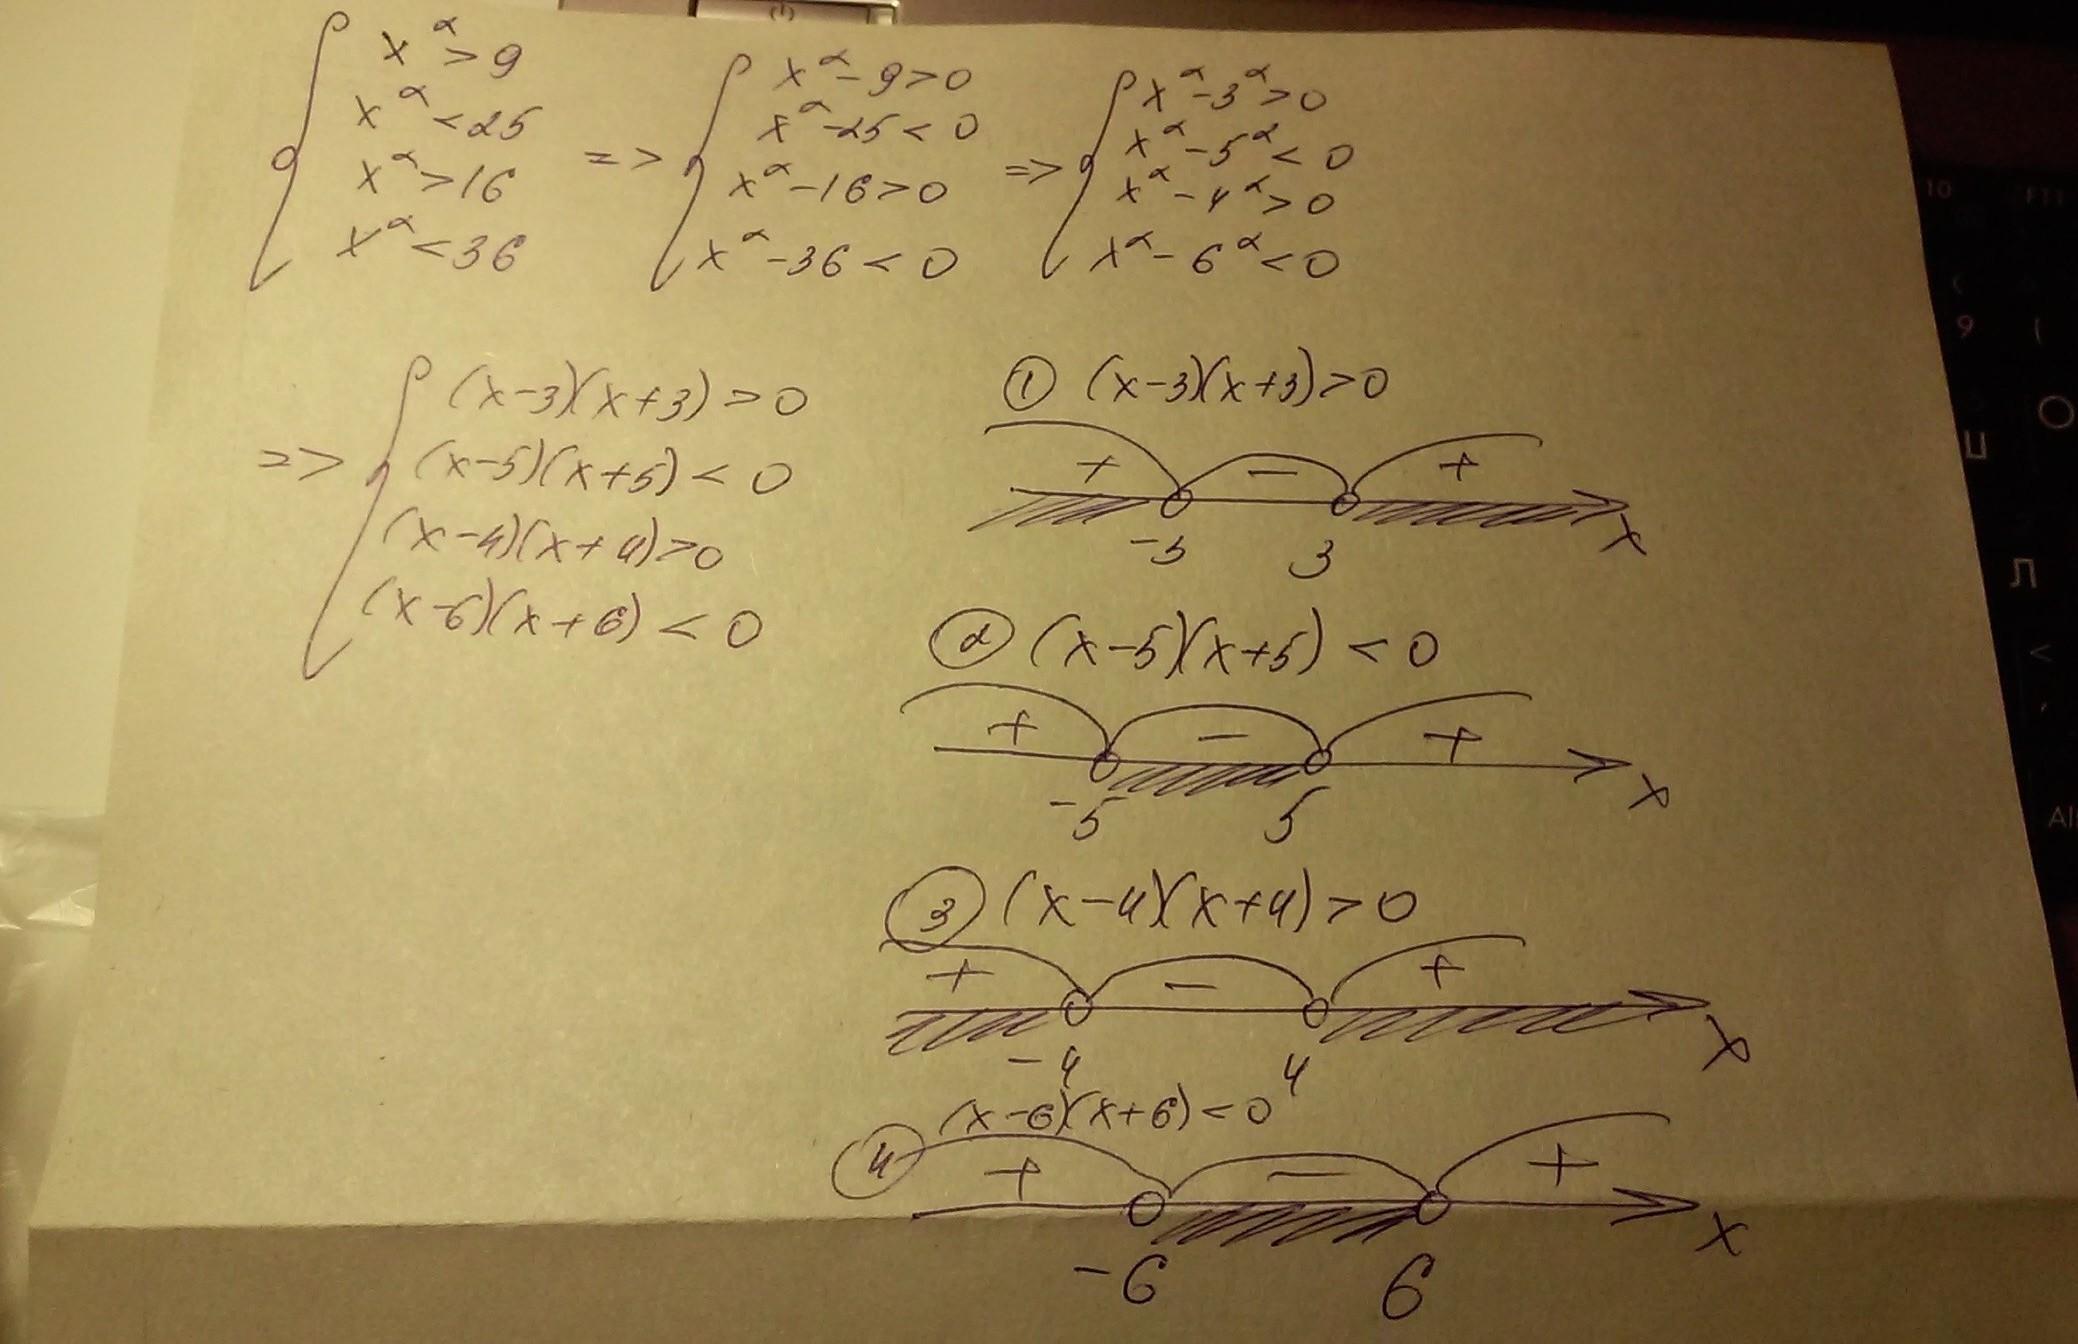 x² > 9
x² < 25
x² > 16
x² < 36
=>
x² - 9 > 0
x² - 25 < 0
x² - 16 > 0
x² - 36 < 0
=>
x² - 3² > 0
x² - 5² < 0
x² - 4² > 0
x² - 6² < 0
=>
(x-3)(x+3) > 0
(x-5)(x+5) < 0
(x-4)(x+4) > 0
(x-6)(x+6) < 0
① (x-3)(x+3) > 0
+ − +
-3 3 x
② (x-5)(x+5) < 0
+ − +
-5 5 x
③ (x-4)(x+4) > 0
+ − +
-4 4 x
④ (x-6)(x+6) < 0
+ − +
-6 6 x
10 F11
9 (
Ш О
Л
<
Al